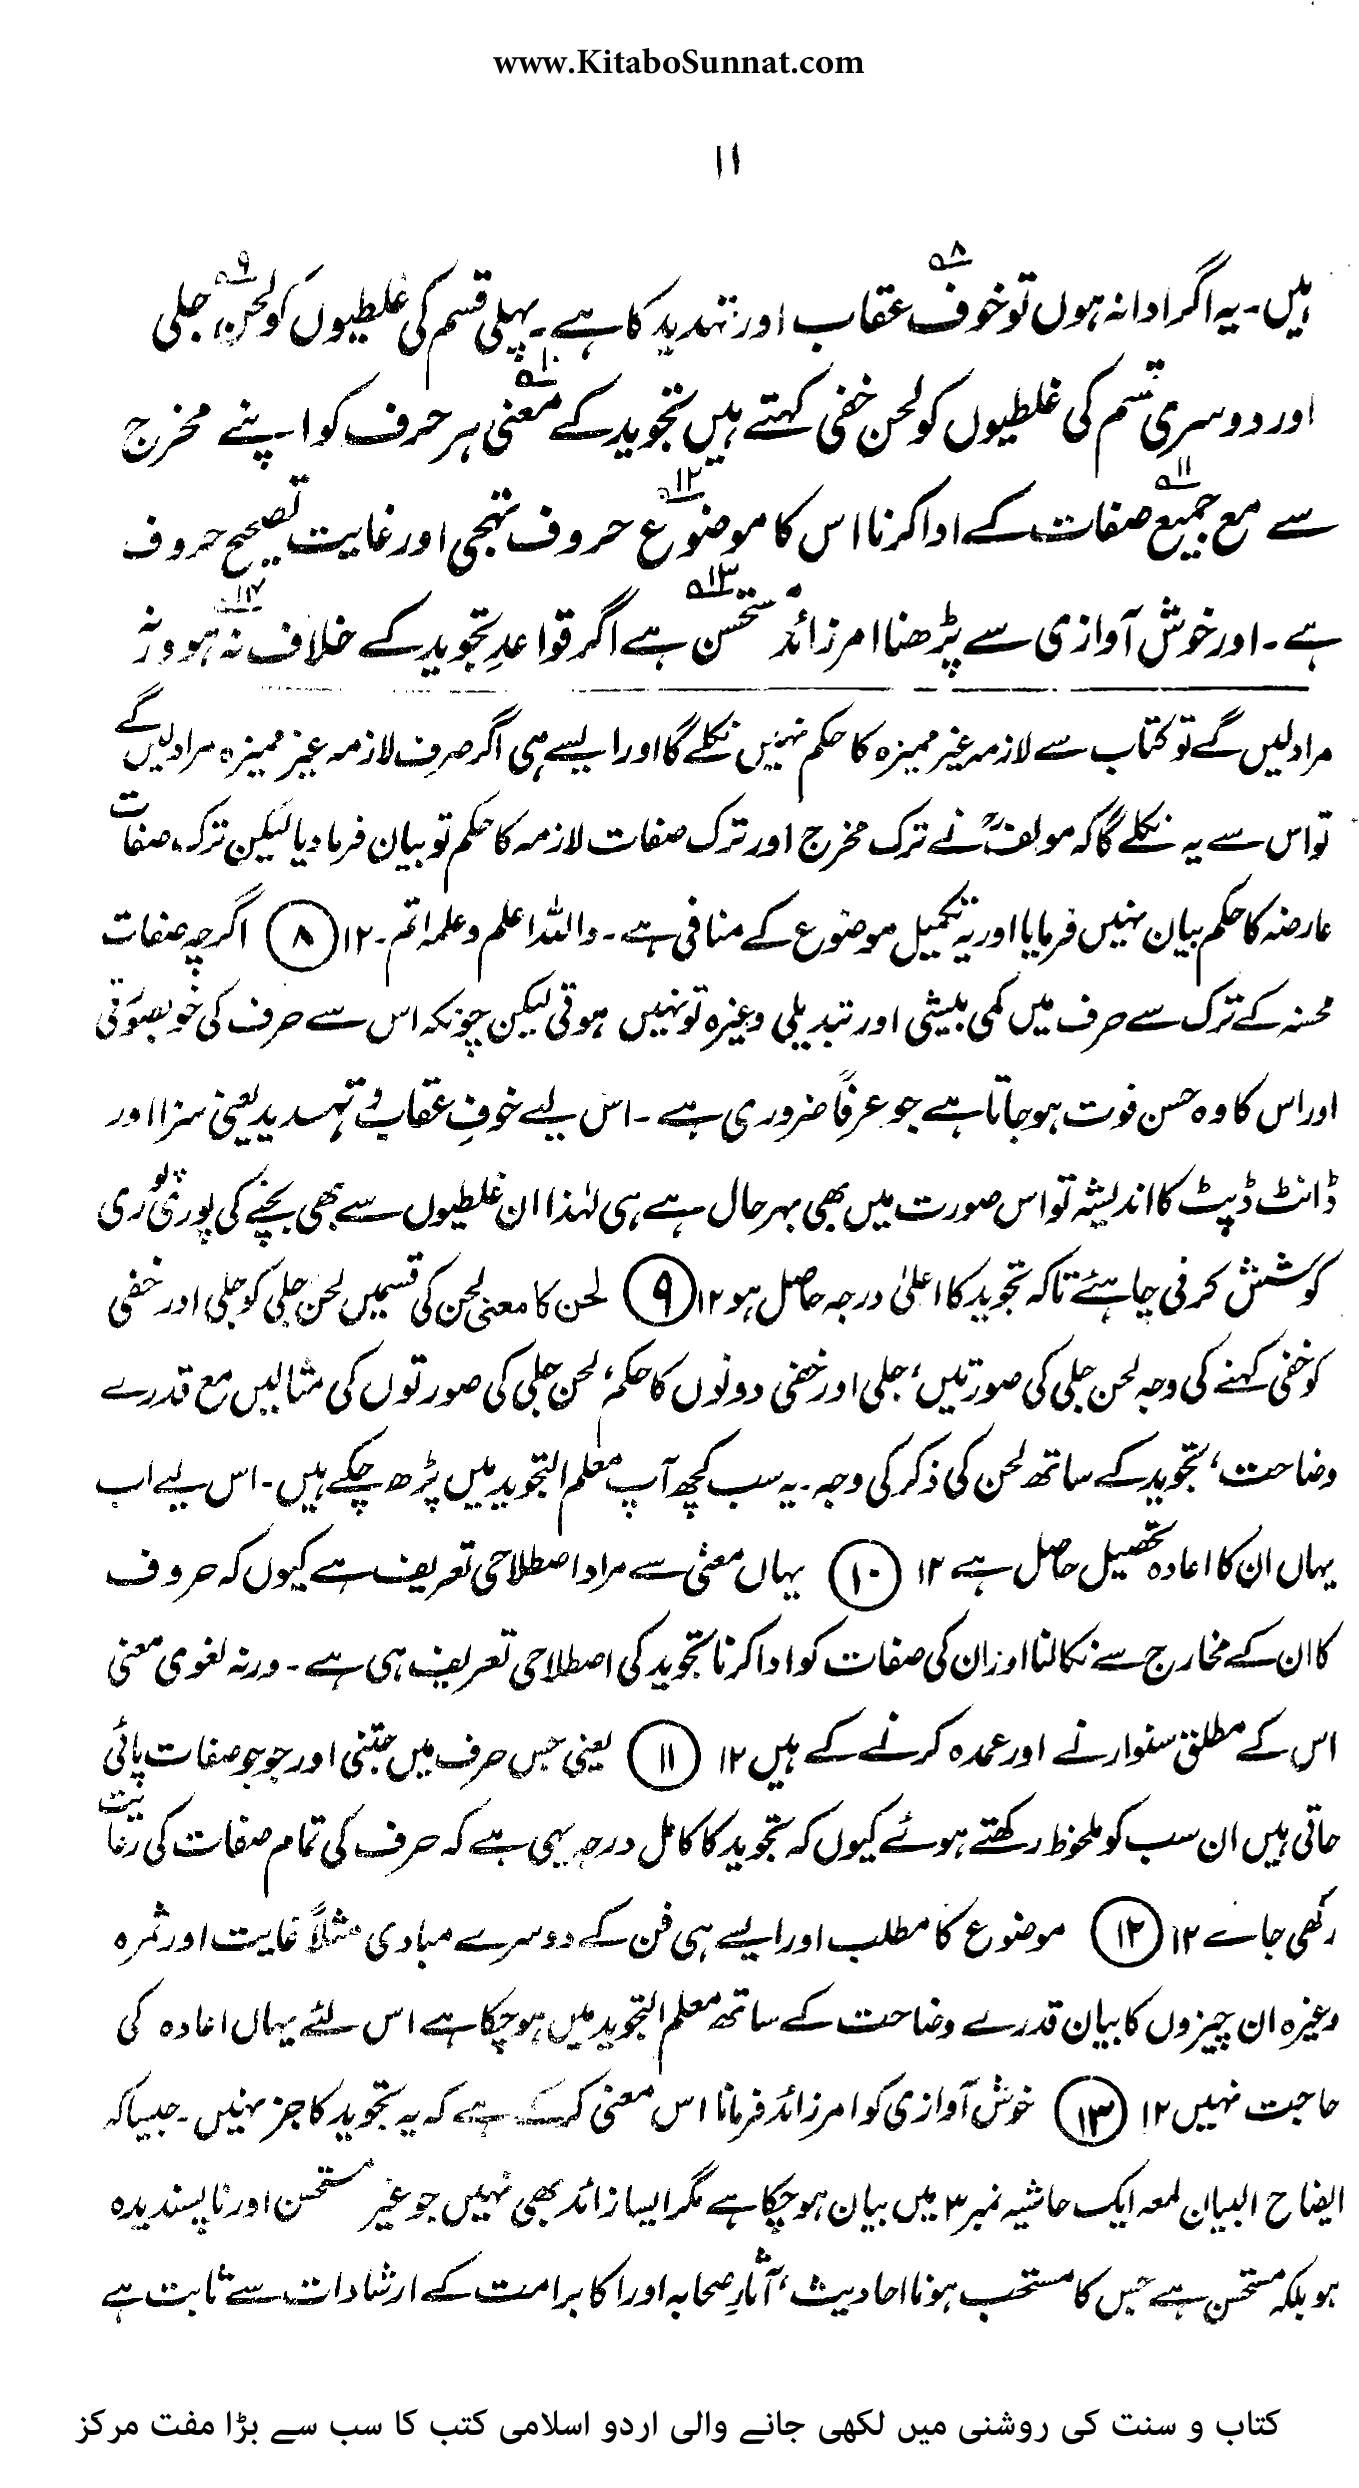 www.KitaboSunnat.com
۱۱
ہیں۔ یہ اگر ادا نہ ہوں تو خوف ۸ عقاب اور تہدید کا ہے۔ پہلی قسم کی غلطیوں کو لحن ۹ جلی
اور دوسری قسم کی غلطیوں کو لحن خفی کہتے ہیں تجوید کے معنی ۱۰ ہر حرف کو اپنے مخرج
سے مع جمیع ۱۱ صفات کے ادا کرنا اس کا موضوع ۱۲ حروف تہجی اور غایت تصحیح حروف
ہے۔ اور خوش آوازی سے پڑھنا امر زائد مستحسن ۱۳ ہے اگر قواعدِ تجوید کے خلاف نہ ۱۴ ہو ورنہ
مراد لیں گے تو کتاب سے لازمہ غیر ممیزہ کا حکم نہیں نکلے گا اور ایسے ہی اگر صرف لازمہ غیر ممیزہ مراد لیں گے
تو اس سے یہ نکلے گا کہ مولفؒ نے ترک مخرج اور ترک صفات لازمہ کا حکم تو بیان فرما دیا لیکن ترک صفات
عارضہ کا حکم بیان نہیں فرمایا اور یہ تکمیل موضوع کے منافی ہے۔ واللہ اعلم وعلمہ اتم۔۱۲ ۸ اگرچہ صفات
محسنہ کے ترک سے حرف میں کمی بیشی اور تبدیلی وغیرہ تو نہیں ہوتی لیکن چونکہ اس سے حرف کی خوبصورتی
اور اس کا وہ حسن فوت ہو جاتا ہے جو عرفاً ضروری ہے۔ اس لیے خوفِ عقاب و تہدید یعنی سزا اور
ڈانٹ ڈپٹ کا اندیشہ تو اس صورت میں بھی بہر حال ہے ہی لہٰذا ان غلطیوں سے بھی بچنے کی پوری پوری
کوشش کرنی چاہئے تاکہ تجوید کا اعلیٰ درجہ حاصل ہو ۱۲ ۹ لحن کا معنی لحن کی قسمیں لحن جلی کو جلی اور خفی
کو خفی کہنے کی وجہ لحن جلی کی صورتیں، جلی اور خفی دونوں کا حکم، لحن جلی کی صورتوں کی مثالیں مع قدرے
وضاحت، تجوید کے ساتھ لحن کی ذکر کی وجہ۔ یہ سب کچھ آپ معلم التجوید میں پڑھ چکے ہیں۔ اس لیے اب
یہاں ان کا اعادہ تحصیل حاصل ہے ۱۲ ۱۰ یہاں معنی سے مراد اصطلاحی تعریف ہے کیوں کہ حروف
کا ان کے مخارج سے نکالنا اور ان کی صفات کو ادا کرنا تجوید کی اصطلاحی تعریف ہی ہے۔ ورنہ لغوی معنی
اس کے مطلق سنوارنے اور عمدہ کرنے کے ہیں ۱۲ ۱۱ یعنی جس حرف میں جتنی اور جو جو صفات پائی
جاتی ہیں ان سب کو ملحوظ رکھتے ہوئے کیوں کہ تجوید کا کامل درجہ یہی ہے کہ حرف کی تمام صفات کی رعایت
رکھی جائے ۱۲ ۱۲ موضوع کا مطلب اور ایسے ہی فن کے دوسرے مبادی مثلاً غایت اور ثمرہ
وغیرہ ان چیزوں کا بیان قدرے وضاحت کے ساتھ معلم التجوید میں ہو چکا ہے اس لئے یہاں اعادہ کی
حاجت نہیں ۱۲ ۱۳ خوش آوازی کو امر زائد فرمانا اس معنی کرکے ہے کہ یہ تجوید کا جز نہیں۔ جیسا کہ
ایضاح البیان لمعہ ایک حاشیہ نمبر ۳ میں بیان ہو چکا ہے مگر ایسا زائد بھی نہیں جو غیر مستحسن اور ناپسندیدہ
ہو بلکہ مستحسن ہے جس کا مستحب ہونا احادیث، آثارِ صحابہ اور اکابر امت کے ارشادات سے ثابت ہے
کتاب و سنت کی روشنی میں لکھی جانے والی اردو اسلامی کتب کا سب سے بڑا مفت مرکز